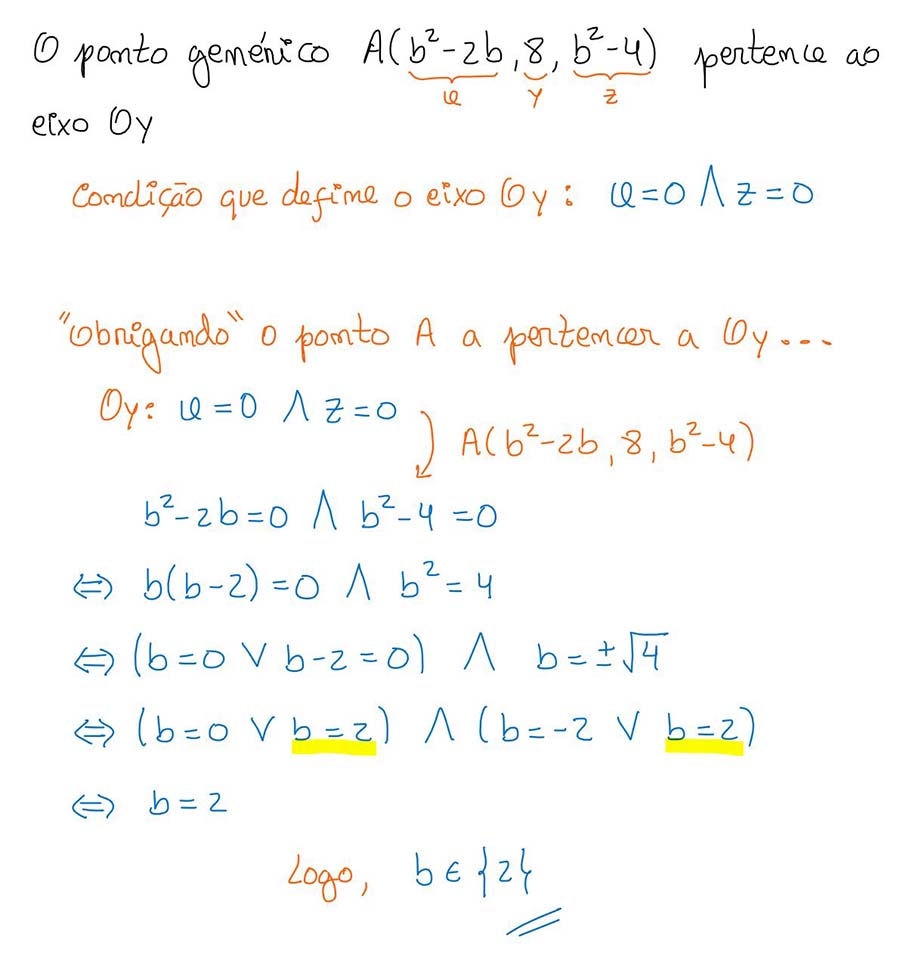 O ponto genérico A(b²-2b, 8, b²-4) pertence ao
x y z
eixo Oy
Condição que define o eixo Oy: x=0 ∧ z=0
"Obrigando" o ponto A a pertencer a Oy...
Oy: x=0 ∧ z=0
A(b²-2b, 8, b²-4)
b²-2b=0 ∧ b²-4=0
⇔ b(b-2)=0 ∧ b²=4
⇔ (b=0 ∨ b-2=0) ∧ b=±√4
⇔ (b=0 ∨ b=2) ∧ (b=-2 ∨ b=2)
⇔ b=2
Logo, b∈{2}